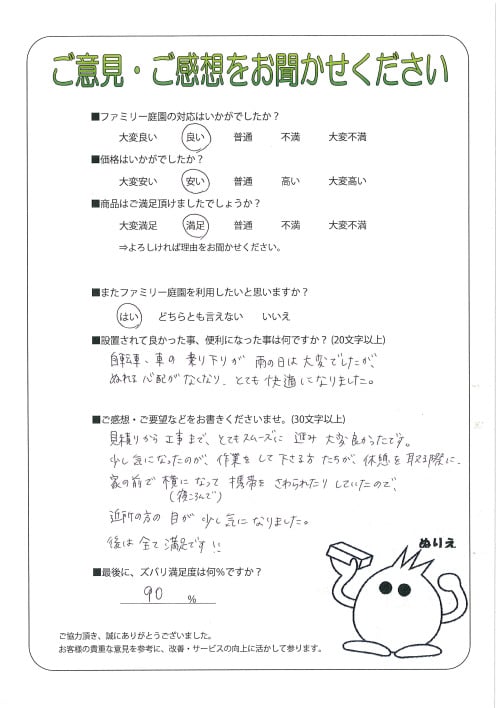 ご意見・ご感想をお聞かせください
■ファミリー庭園の対応はいかがでしたか？
大変良い 良い 普通 不満 大変不満
■価格はいかがでしたか？
大変安い 安い 普通 高い 大変高い
■商品はご満足頂けましたでしょうか？
大変満足 満足 普通 不満 大変不満
⇒よろしければ理由をお聞かせください。
■またファミリー庭園を利用したいと思いますか？
はい どちらとも言えない いいえ
■設置されて良かった事、便利になった事は何ですか？(20文字以上)
自転車、車の乗り下りが雨の日は大変でしたが、
ぬれる心配がなくなり、とても快適になりました。
■ご感想・ご要望などをお書きくださいませ。(30文字以上)
見積りから工事まで、とてもスムーズに進み大変良かったです。
少し気になったのが、作業をして下さる方たちが、休憩を取る際に、
家の前で横になって携帯をさわられたりしていたので、
(寝ころんで)
近所の方の目が少し気になりました。
後は全て満足です!!
ぬりえ
■最後に、ズバリ満足度は何％ですか？
90 ％
ご協力頂き、誠にありがとうございました。
お客様の貴重な意見を参考に、改善・サービスの向上に活かして参ります。